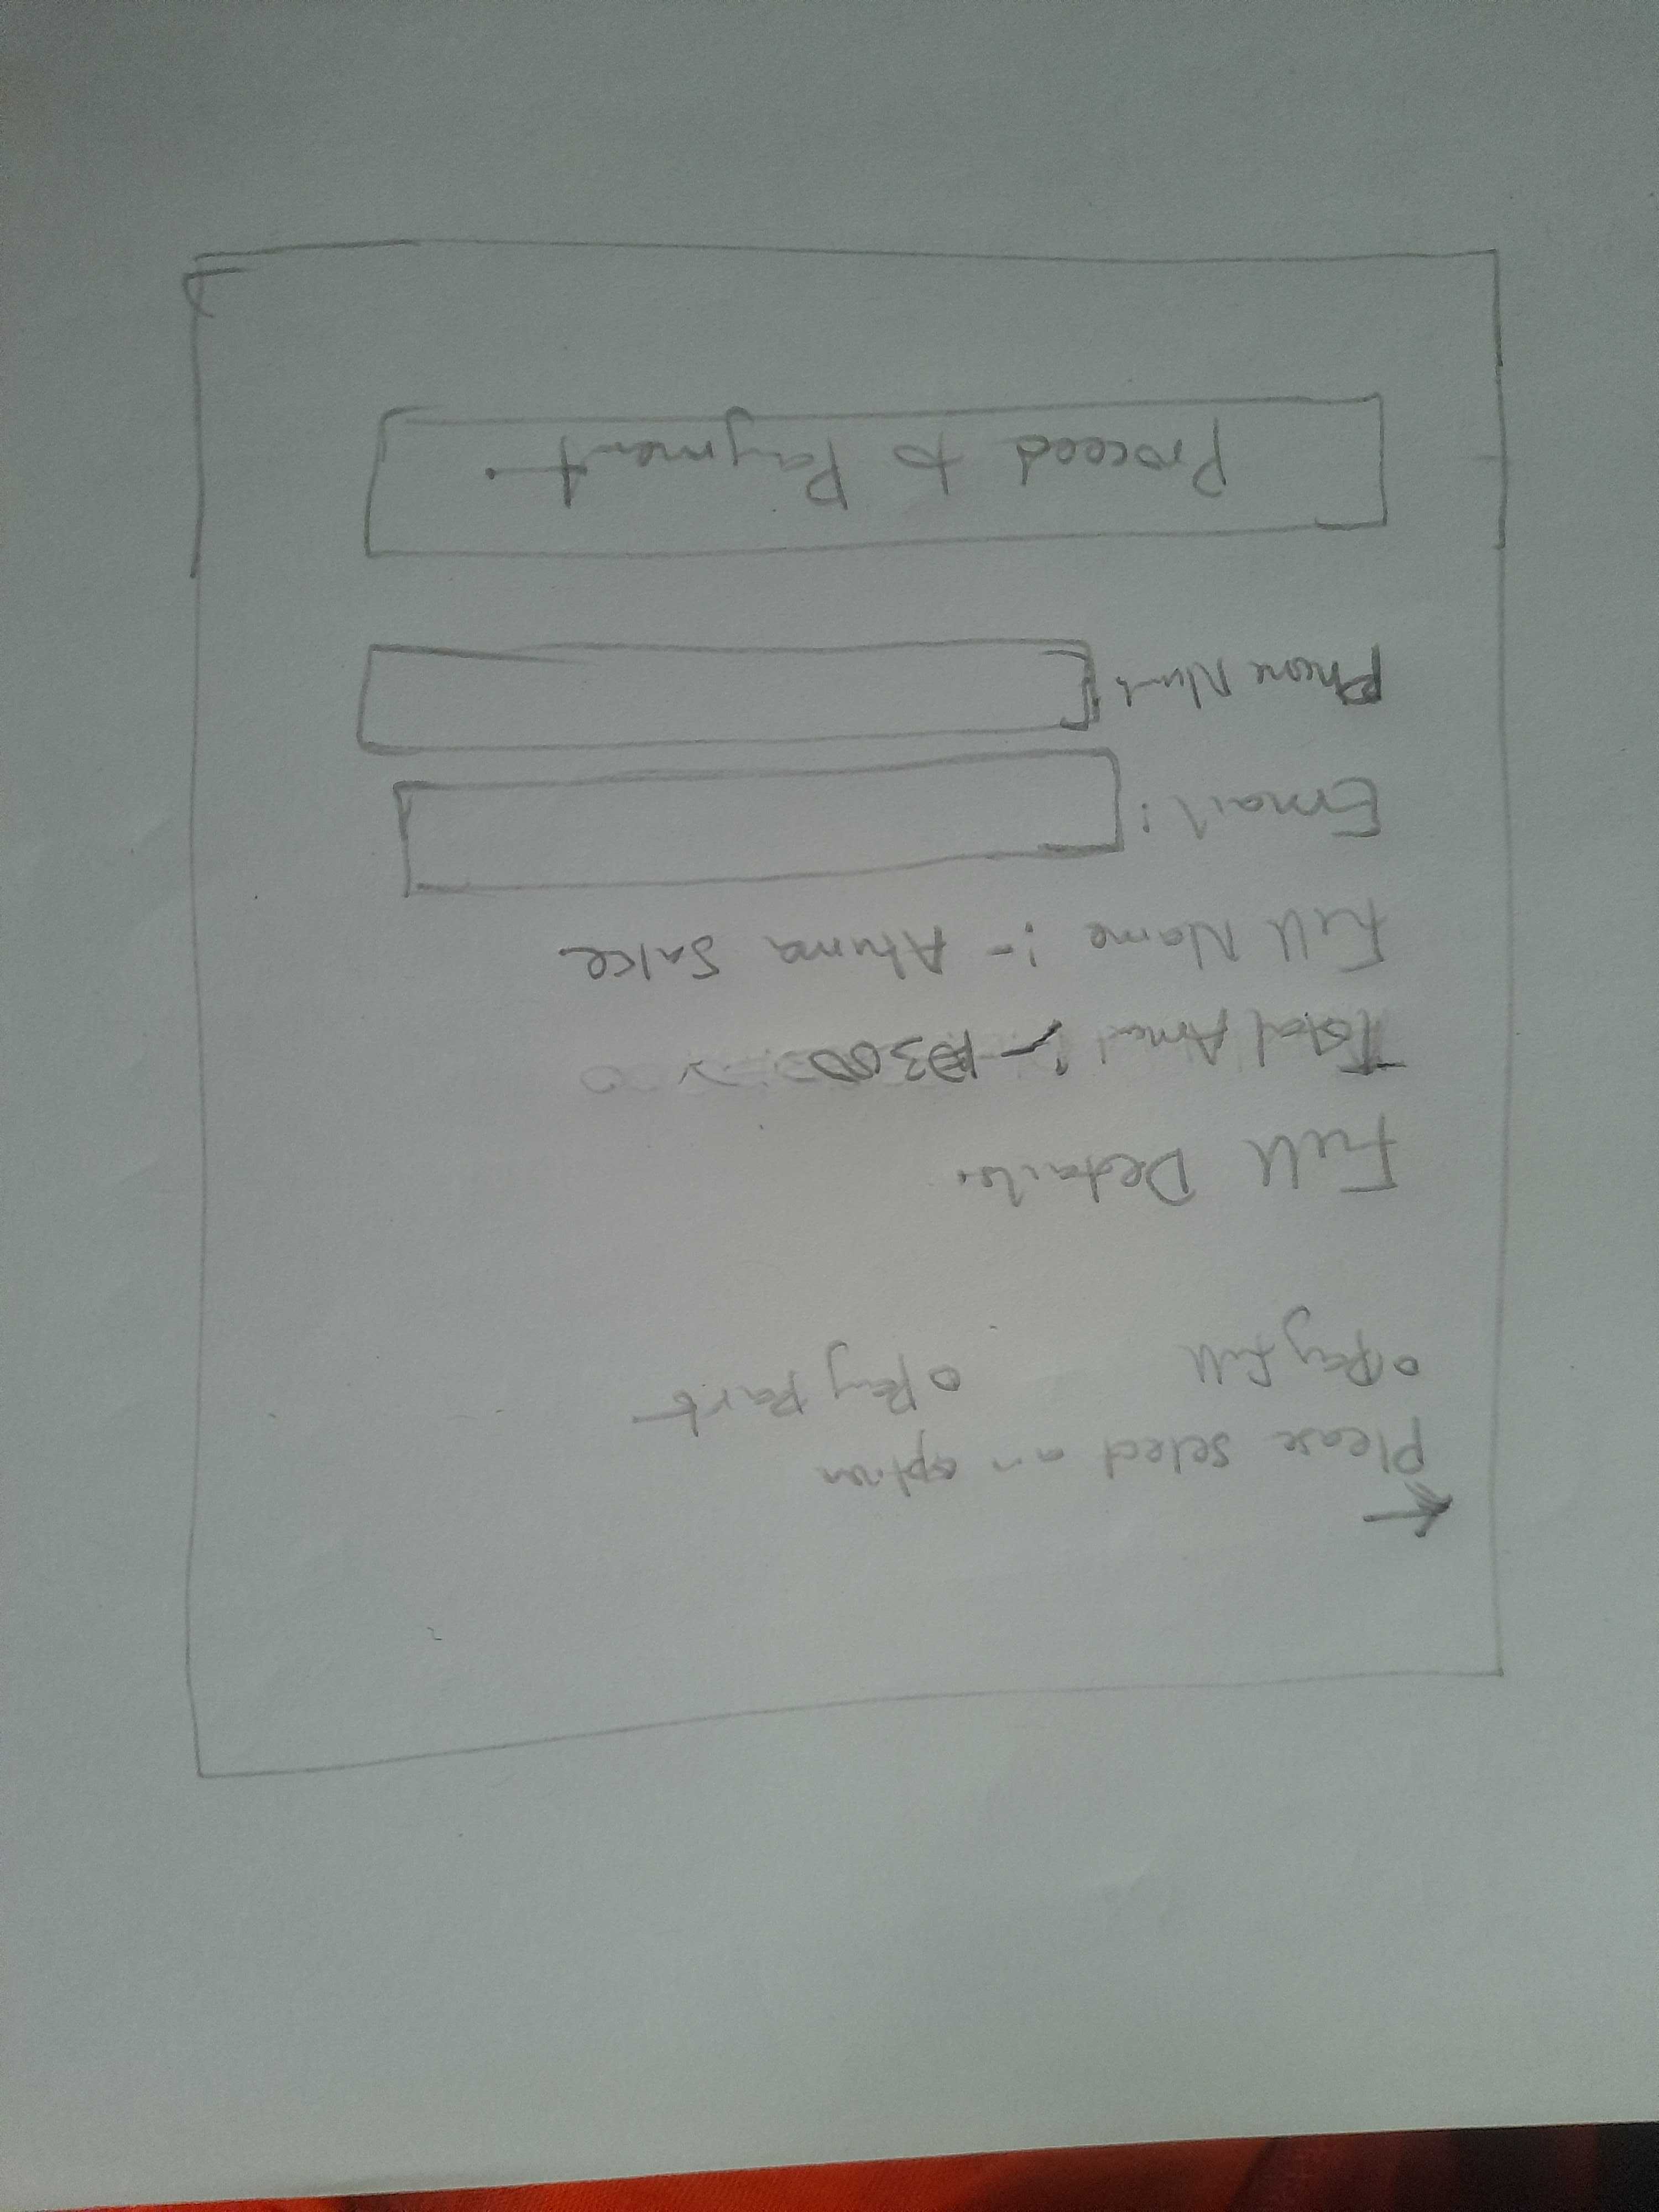 Please select an option
o Pay full o Pay Part
Full Details.
Total Amo :-
Full Name :- Ahuna Sake
Email :
Phone Num :
Proceed to Payment.